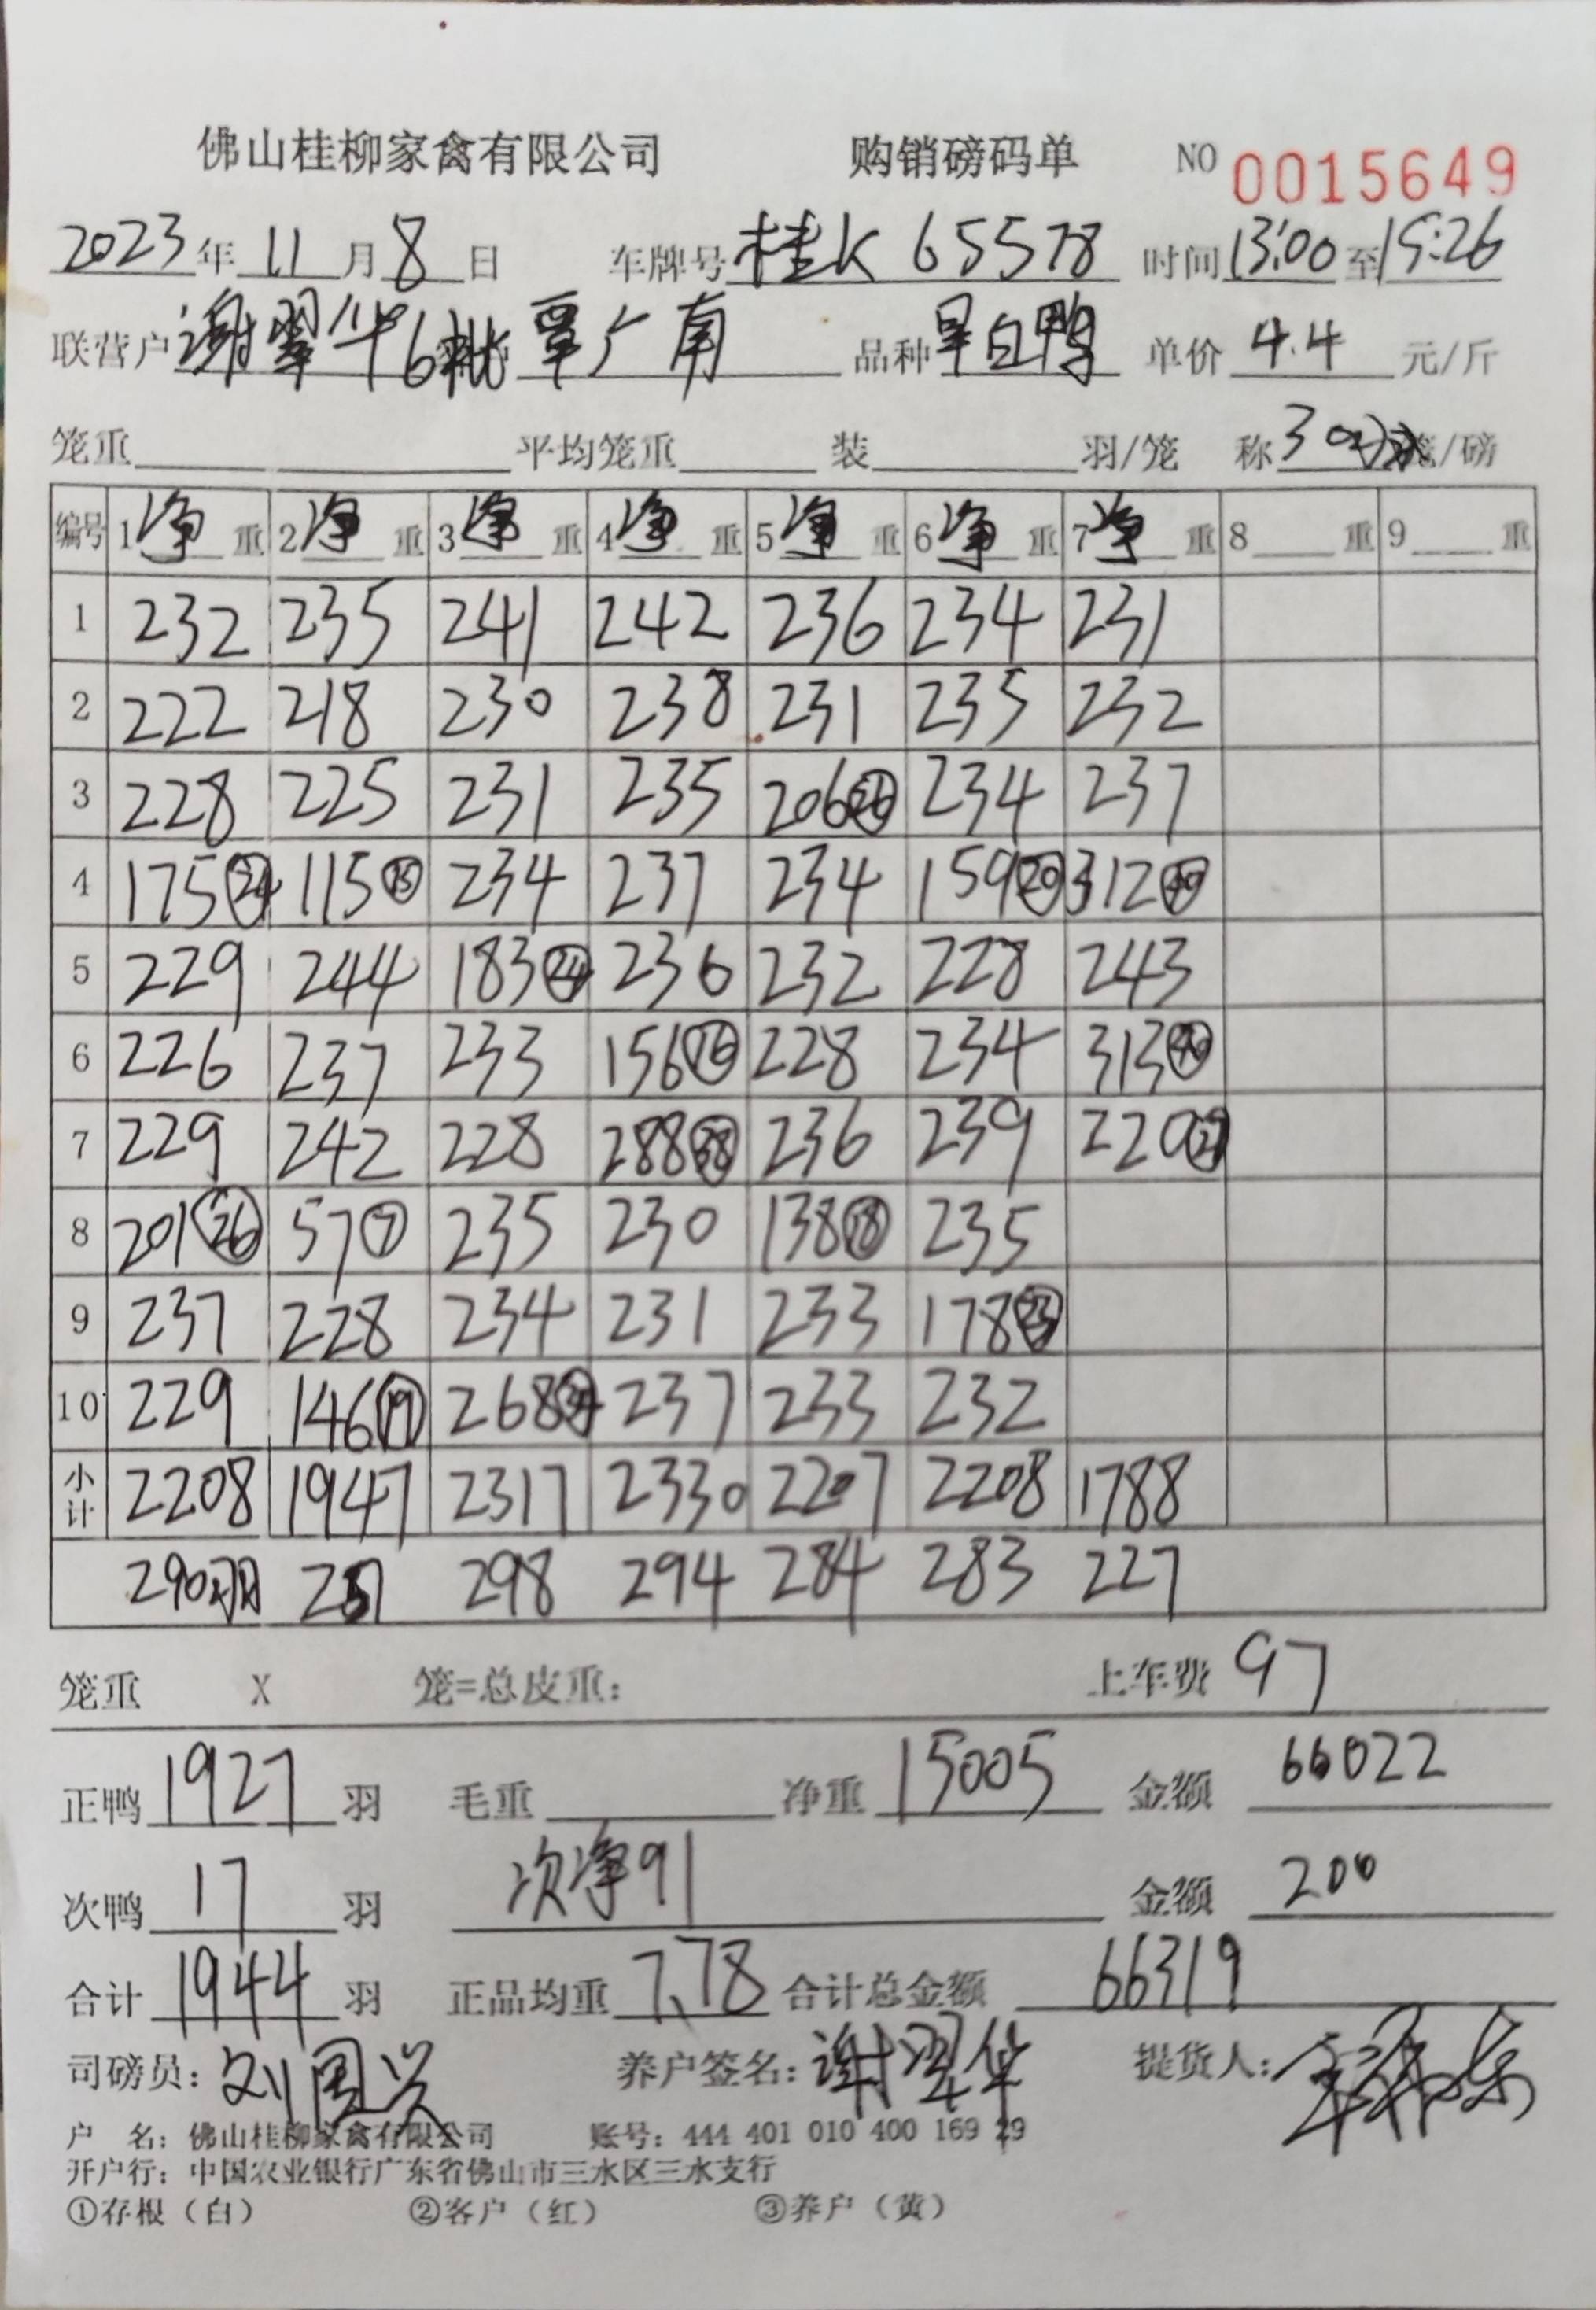 佛山桂柳家禽有限公司 购销磅码单 NO 0015649
2023年 11月 8日 车牌号 桂K 65578 时间 13:00 至 15:26
联营户 谢翠华6批 覃广南 品种 旱白鸭 单价 4.4 元/斤
笼重 平均笼重 装 羽/笼 称 30羽 笼/磅
编号 1净重 2净重 3净重 4净重 5净重 6净重 7净重 8 重 9 重
1 232 235 241 242 236 234 231
2 222 218 230 238 231 235 232
3 228 225 231 235 206㉖ 234 237
4 175㉔ 115⑮ 234 237 234 159⑳ 312㊵
5 229 244 183㉔ 236 232 228 243
6 226 237 233 156 228 234 313㊵
7 229 242 228 288㊳ 236 239 220㉗
8 201㉖ 57⑦ 235 230 138⑱ 235
9 237 228 234 231 233 178㉓
10 229 146⑲ 268㉞ 237 233 232
小计 2208 1947 2317 2330 2207 2208 1788
290羽 251 298 294 284 283 227
笼重 X 笼=总皮重: 上车费 97
正鸭 1927 羽 毛重 净重 15005 金额 66022
次鸭 17 羽 次净91 金额 200
合计 1944 羽 正品均重 7.78 合计总金额 66319
司磅员: 刘国兴 养户签名: 谢翠华 提货人:
户 名: 佛山桂柳家禽有限公司 账号: 444 401 010 400 169 29
开户行: 中国农业银行广东省佛山市三水区三水支行
①存根(白) ②客户(红) ③养户(黄)